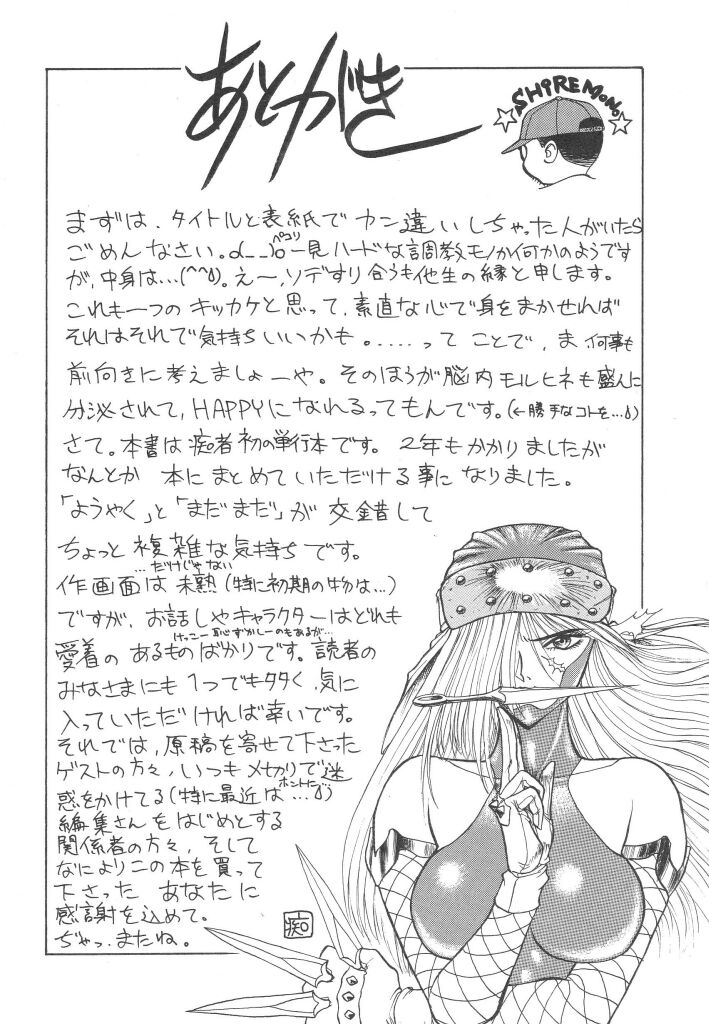 あとがき
SHiREMoNo
まずは、タイトルと表紙でカン違いしちゃった人がいたら
ごめんなさい。o(__)o ペコリ 一見ハードな調教モノか何かのようです
が、中身は…(^^;)。え〜、ソデすり合うも他生の縁と申します。
これも一つのキッカケと思って、素直な心で身をまかせれば
それはそれで気持ちいいかも。.....って ことで、ま 何事も
前向きに考えましょーや。そのほうが脳内モルヒネも盛んに
分泌されて、HAPPYになれるってもんです。(←勝手なコトを…;)
さて。本書は痴者初の単行本です。2年もかかりましたが
なんとか 本にまとめていただける事になりました。
「ようやく」と「まだまだ」が 交錯して
ちょっと 複雑な気持ちです。
…だけじゃない
作画面は 未熟(特に初期の物は…)
ですが、お話しやキャラクターはどれも
けっこー恥ずかしーのもあるが…
愛着の あるものばかりです。読者の
みなさまにも 1つでも多く、気に
入っていただければ幸いです。
それでは、原稿を寄せて下さった
ゲストの方々、いつも〆切りで迷
ホントに…
惑をかけてる(特に最近は…;)
編集さんをはじめとする
関係者の方々、そして
なによりこの本を買って
下さった あなたに
感謝を込めて。
ぢゃっ、またね。
痴